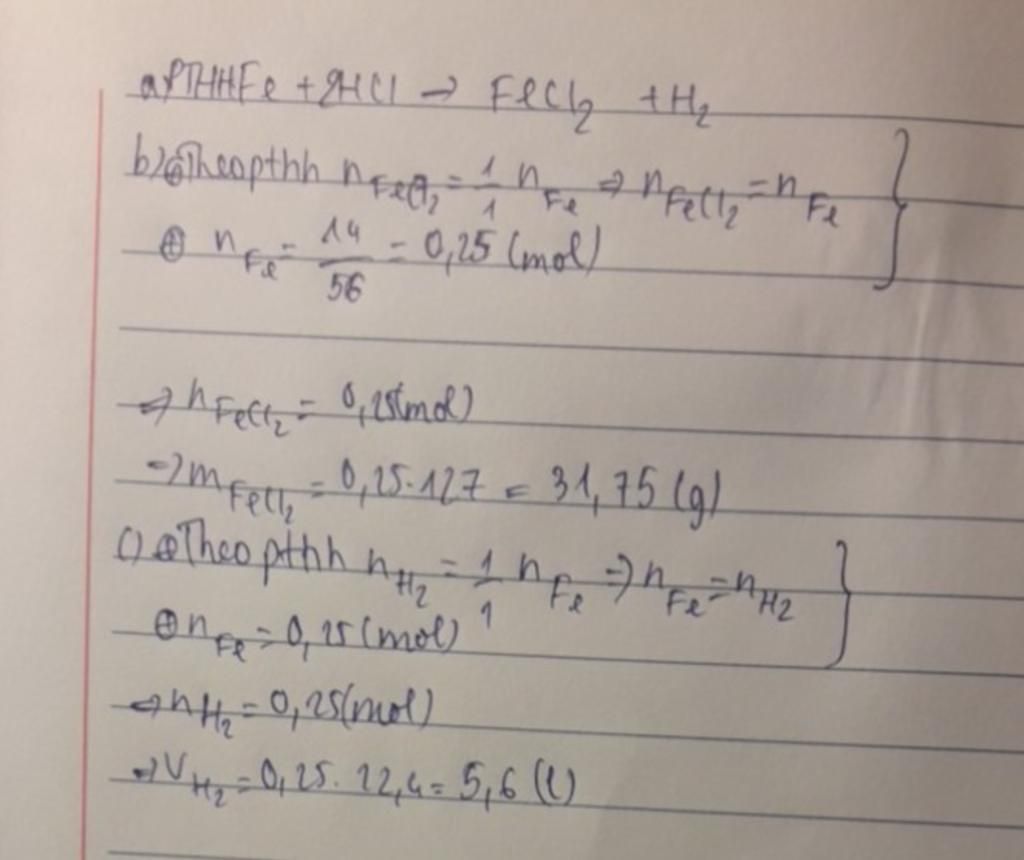 a)PTHH Fe + 2HCl → FeCl₂ + H₂
b)⊕Theo pthh n_FeCl₂ = 1/1 n_Fe ⇒ n_FeCl₂ = n_Fe
⊕ n_Fe = 14/56 = 0,25 (mol)
⇒ n_FeCl₂ = 0,25(mol)
⇒ m_FeCl₂ = 0,25.127 = 31,75 (g)
c) ⊕Theo pthh n_H₂ = 1/1 n_Fe ⇒ n_Fe = n_H₂
⊕ n_Fe = 0,25 (mol)
⇒ n_H₂ = 0,25(mol)
⇒ V_H₂ = 0,25. 22,4 = 5,6 (l)